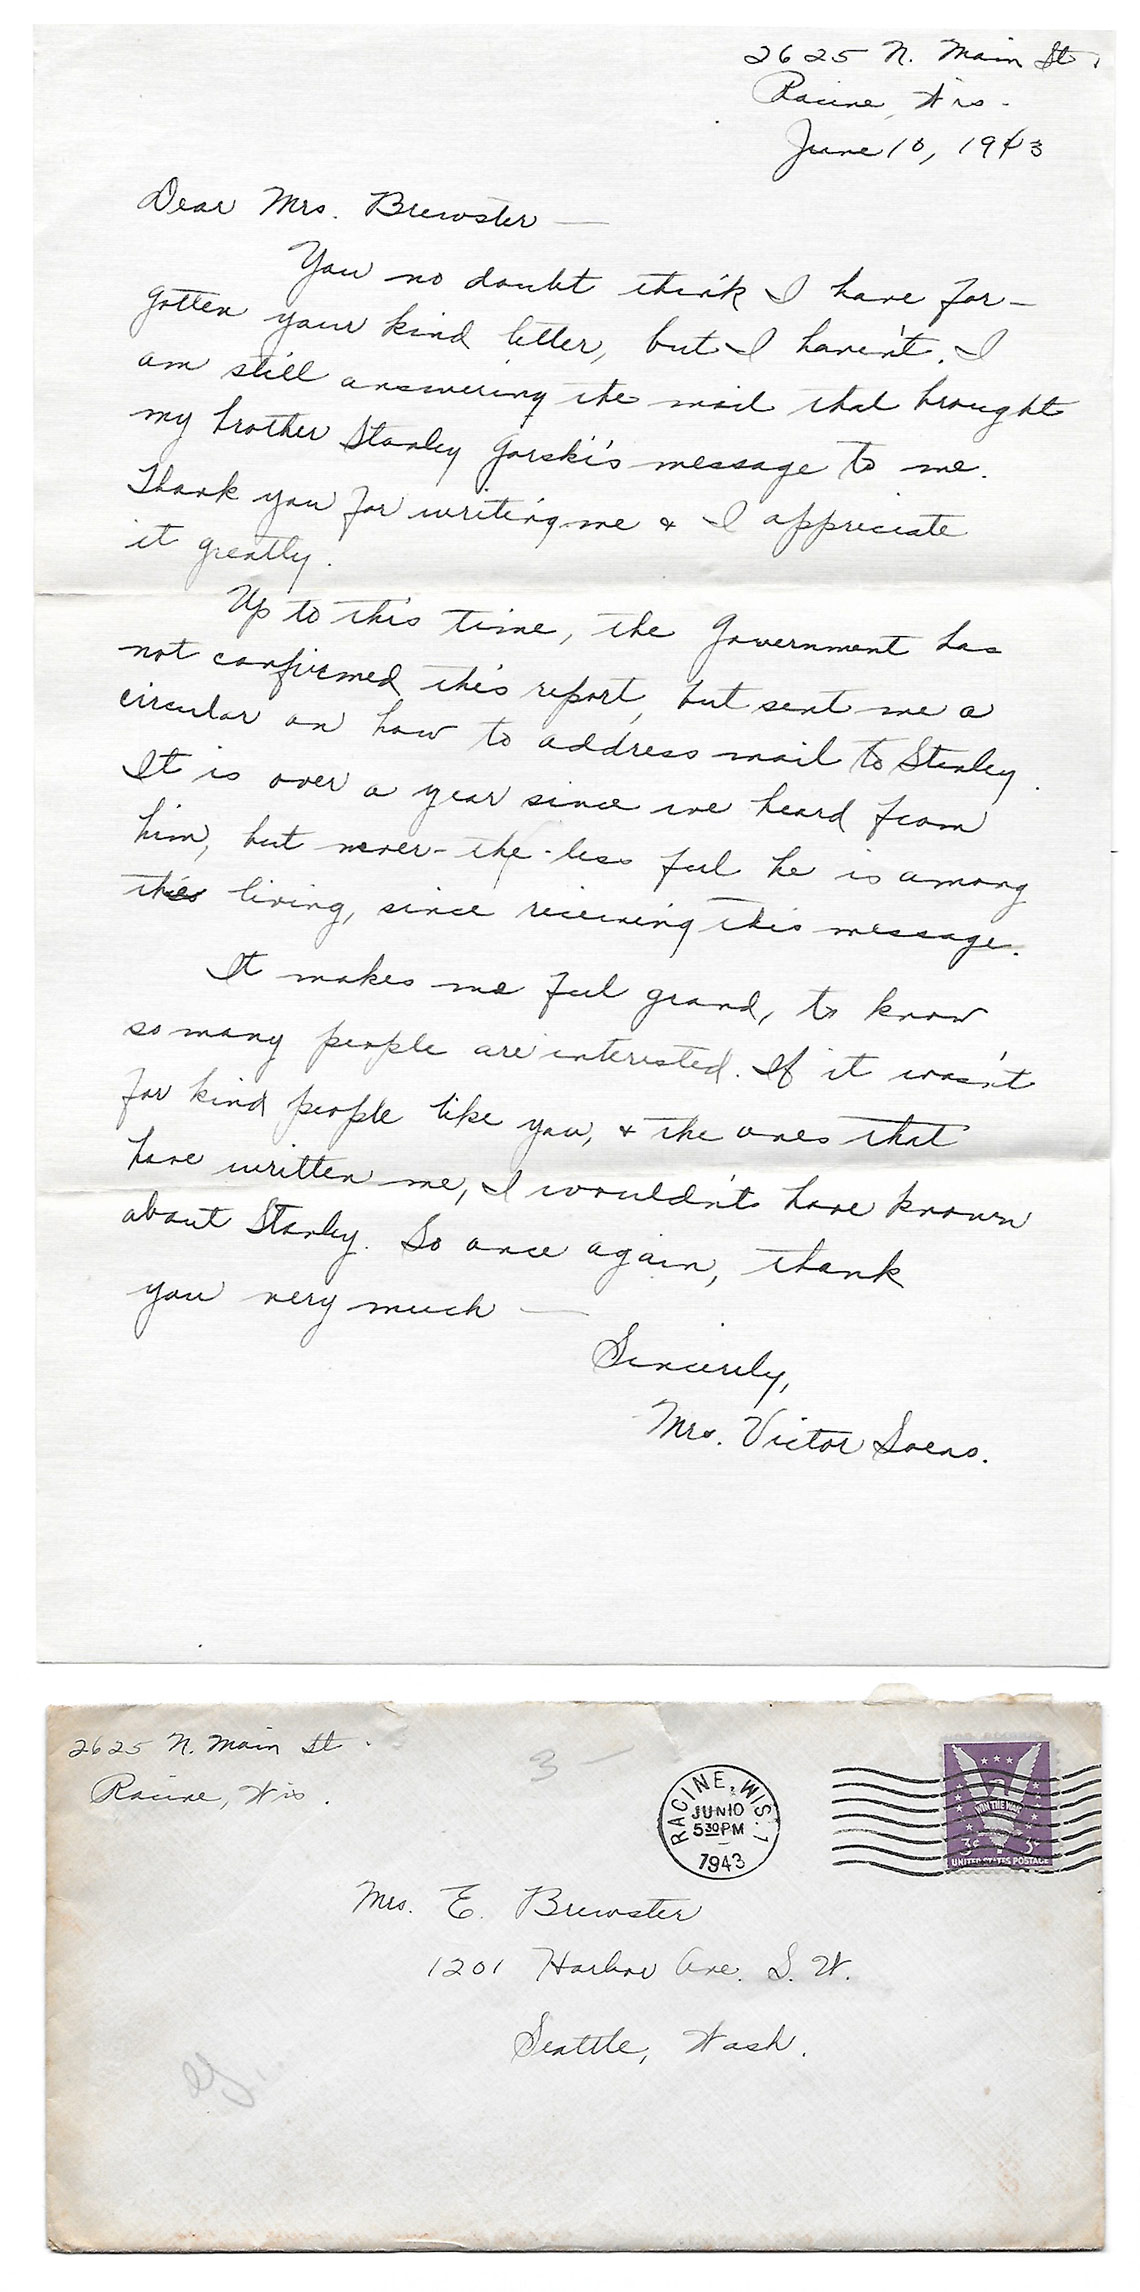 2625 N. Main St.
Racine, Wis.
June 10, 1943
Dear Mrs. Brewster —
You no doubt think I have for-
gotten your kind letter, but I haven't. I
am still answering the mail that brought
my brother Stanley Gorski's message to me.
Thank you for writing me & I appreciate
it greatly.
Up to this time, the Government has
not confirmed this report, but sent me a
circular on how to address mail to Stanley.
It is over a year since we heard from
him, but never-the-less feel he is among
the living, since receiving this message.
It makes me feel grand, to know
so many people are interested. If it wasn't
for kind people like you, & the ones that
have written me, I wouldn't have known
about Stanley. So once again, thank
you very much —
Sincerely,
Mrs. Victor Soens.
2625 N. Main St.
Racine, Wis.
3
RACINE, WIS. 1
JUN 10
5 30 PM
1943
WIN THE WAR
3¢ 3¢
UNITED STATES POSTAGE
Mrs. E. Brewster
1201 Harbor Ave. S. W.
Seattle, Wash.